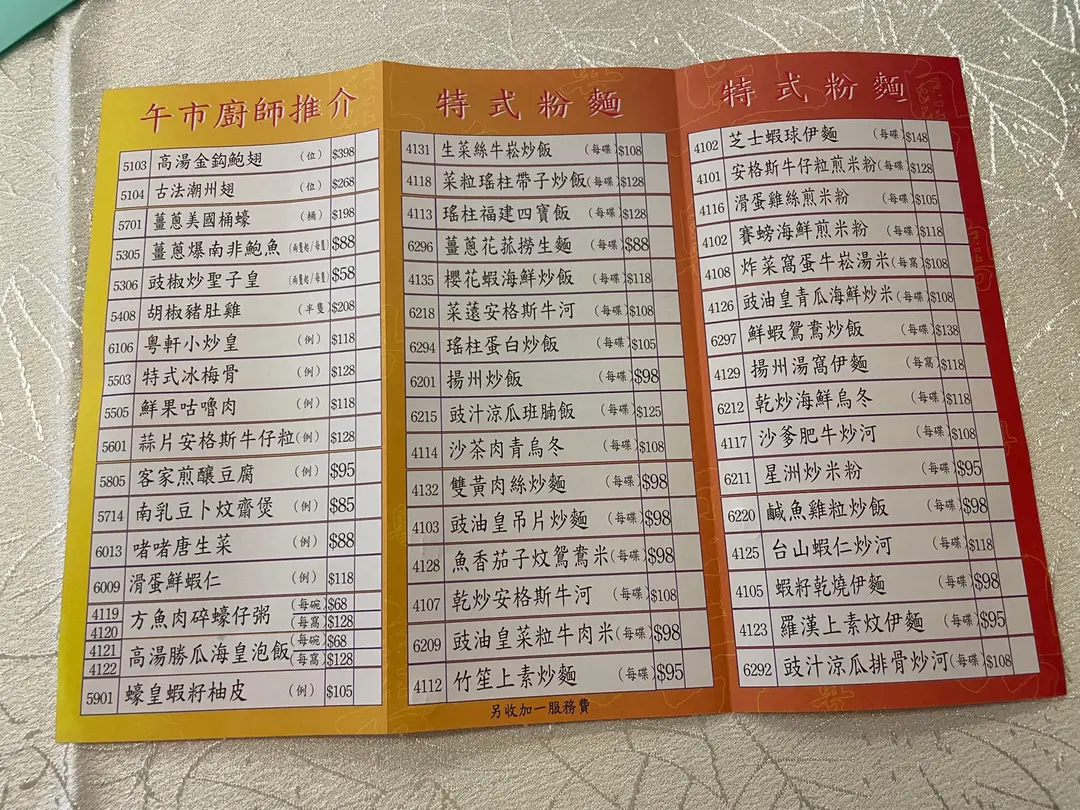 午市廚師推介
5103 高湯金鈎鮑翅 (位) $398
5104 古法潮州翅 (位) $268
5701 薑蔥美國桶蠔 (桶) $198
5305 薑蔥爆南非鮑魚 (兩隻起/每隻) $88
5306 豉椒炒聖子皇 (兩隻起/每隻) $58
5408 胡椒豬肚雞 (半隻) $208
6106 粵軒小炒皇 (例) $118
5503 特式冰梅骨 (例) $128
5505 鮮果咕嚕肉 (例) $118
5601 蒜片安格斯牛仔粒 (例) $128
5805 客家煎釀豆腐 (例) $95
5714 南乳豆卜炆齋煲 (例) $85
6013 啫啫唐生菜 (例) $88
6009 滑蛋鮮蝦仁 (例) $118
4119 方魚肉碎蠔仔粥 (每碗) $68
4120 (每窩) $128
4121 高湯勝瓜海皇泡飯 (每碗) $68
4122 (每窩) $128
5901 蠔皇蝦籽柚皮 (例) $105
特式粉麵
4131 生菜絲牛崧炒飯 (每碟) $108
4118 菜粒瑤柱帶子炒飯 (每碟) $128
4113 瑤柱福建四寶飯 (每碟) $128
6296 薑蔥花菰撈生麵 (每碟) $88
4135 櫻花蝦海鮮炒飯 (每碟) $118
6218 菜遠安格斯牛河 (每碟) $108
6294 瑤柱蛋白炒飯 (每碟) $105
6201 揚州炒飯 (每碟) $98
6215 豉汁涼瓜班腩飯 (每碟) $125
4114 沙茶肉青烏冬 (每碟) $108
4132 雙黃肉絲炒麵 (每碟) $98
4103 豉油皇吊片炒麵 (每碟) $98
4128 魚香茄子炆鴛鴦米 (每碟) $98
4107 乾炒安格斯牛河 (每碟) $108
6209 豉油皇菜粒牛肉米 (每碟) $98
4112 竹笙上素炒麵 (每碟) $95
另收加一服務費
特式粉麵
4102 芝士蝦球伊麵 (每碟) $148
4101 安格斯牛仔粒煎米粉 (每碟) $128
4116 滑蛋雞絲煎米粉 (每碟) $105
4102 賽螃海鮮煎米粉 (每碟) $118
4108 炸菜窩蛋牛崧湯米 (每窩) $108
4126 豉油皇青瓜海鮮炒米 (每碟) $108
6297 鮮蝦鴛鴦炒飯 (每碟) $138
4129 揚州湯窩伊麵 (每窩) $118
6212 乾炒海鮮烏冬 (每碟) $118
4117 沙爹肥牛炒河 (每碟) $108
6211 星洲炒米粉 (每碟) $95
6220 鹹魚雞粒炒飯 (每碟) $98
4125 台山蝦仁炒河 (每碟) $118
4105 蝦籽乾燒伊麵 (每碟) $98
4123 羅漢上素炆伊麵 (每碟) $95
6292 豉汁涼瓜排骨炒河 (每碟) $108